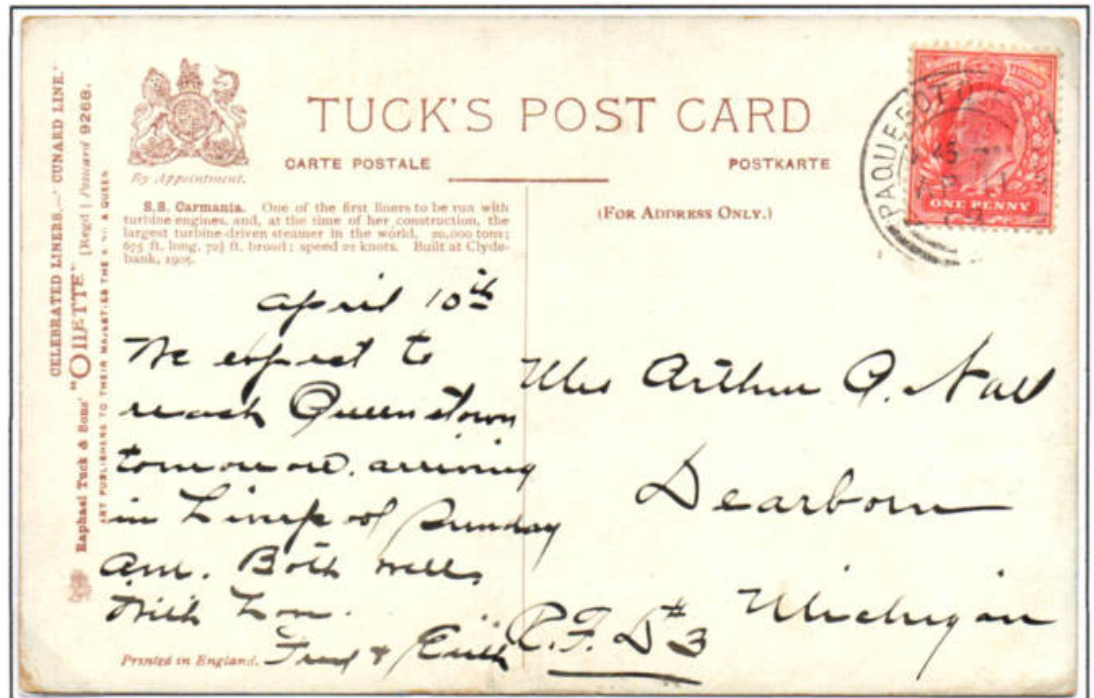 CELEBRATED LINERS.—' CUNARD LINE.'
Raphael Tuck & Sons' "OILETTE" [Regd] Postcard 9268.
ART PUBLISHERS TO THEIR MAJESTIES THE KING & QUEEN
By Appointment.
TUCK'S POST CARD
CARTE POSTALE
POSTKARTE
S.S. Carmania. One of the first liners to be run with
turbine engines, and, at the time of her construction, the
largest turbine-driven steamer in the world. 20,000 tons;
675 ft. long, 72½ ft. broad; speed 22 knots. Built at Clyde-
bank, 1905.
(FOR ADDRESS ONLY.)
PAQUEBOT
ONE PENNY
April 10th
We expect to
reach Queenstown
tomorrow. arriving
in Liverpool Sunday
am. Both well,
With Love.
Fred & Edith
Mrs Arthur A. Nall
Dearborn
Michigan
R.F.D #3
Printed in England.